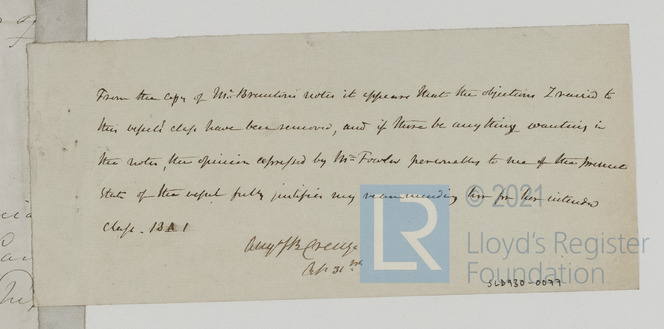 From the copy of Mr. Brunton's notes it appears that the objections I raised to
this vessel's class have been removed, and if there be anything wanting in
the notes, the opinion expressed by Mr. Fowler personally to me of the present
state of the vessel fully justifies my recommending her for her intended
Class. 13 A 1
Augs. B. Creuze
31st
LR
© 2021
Lloyd's Register
Foundation
SLD930-0077